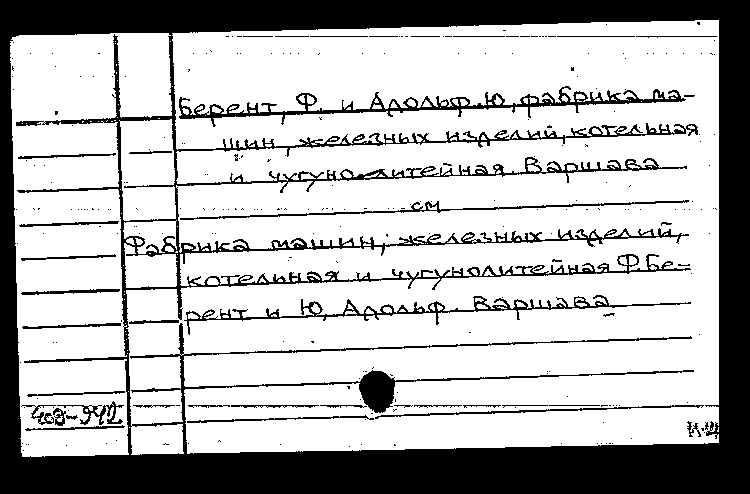 Берент, Ф. и Адольф.Ю, фабрика ма-
шин, железных изделий, котельная
и чугуно-литейная. Варшава
см
Фабрика машин, железных изделий,
котельная и чугунолитейная Ф.Бе-
рент и Ю, Адольф. Варшава